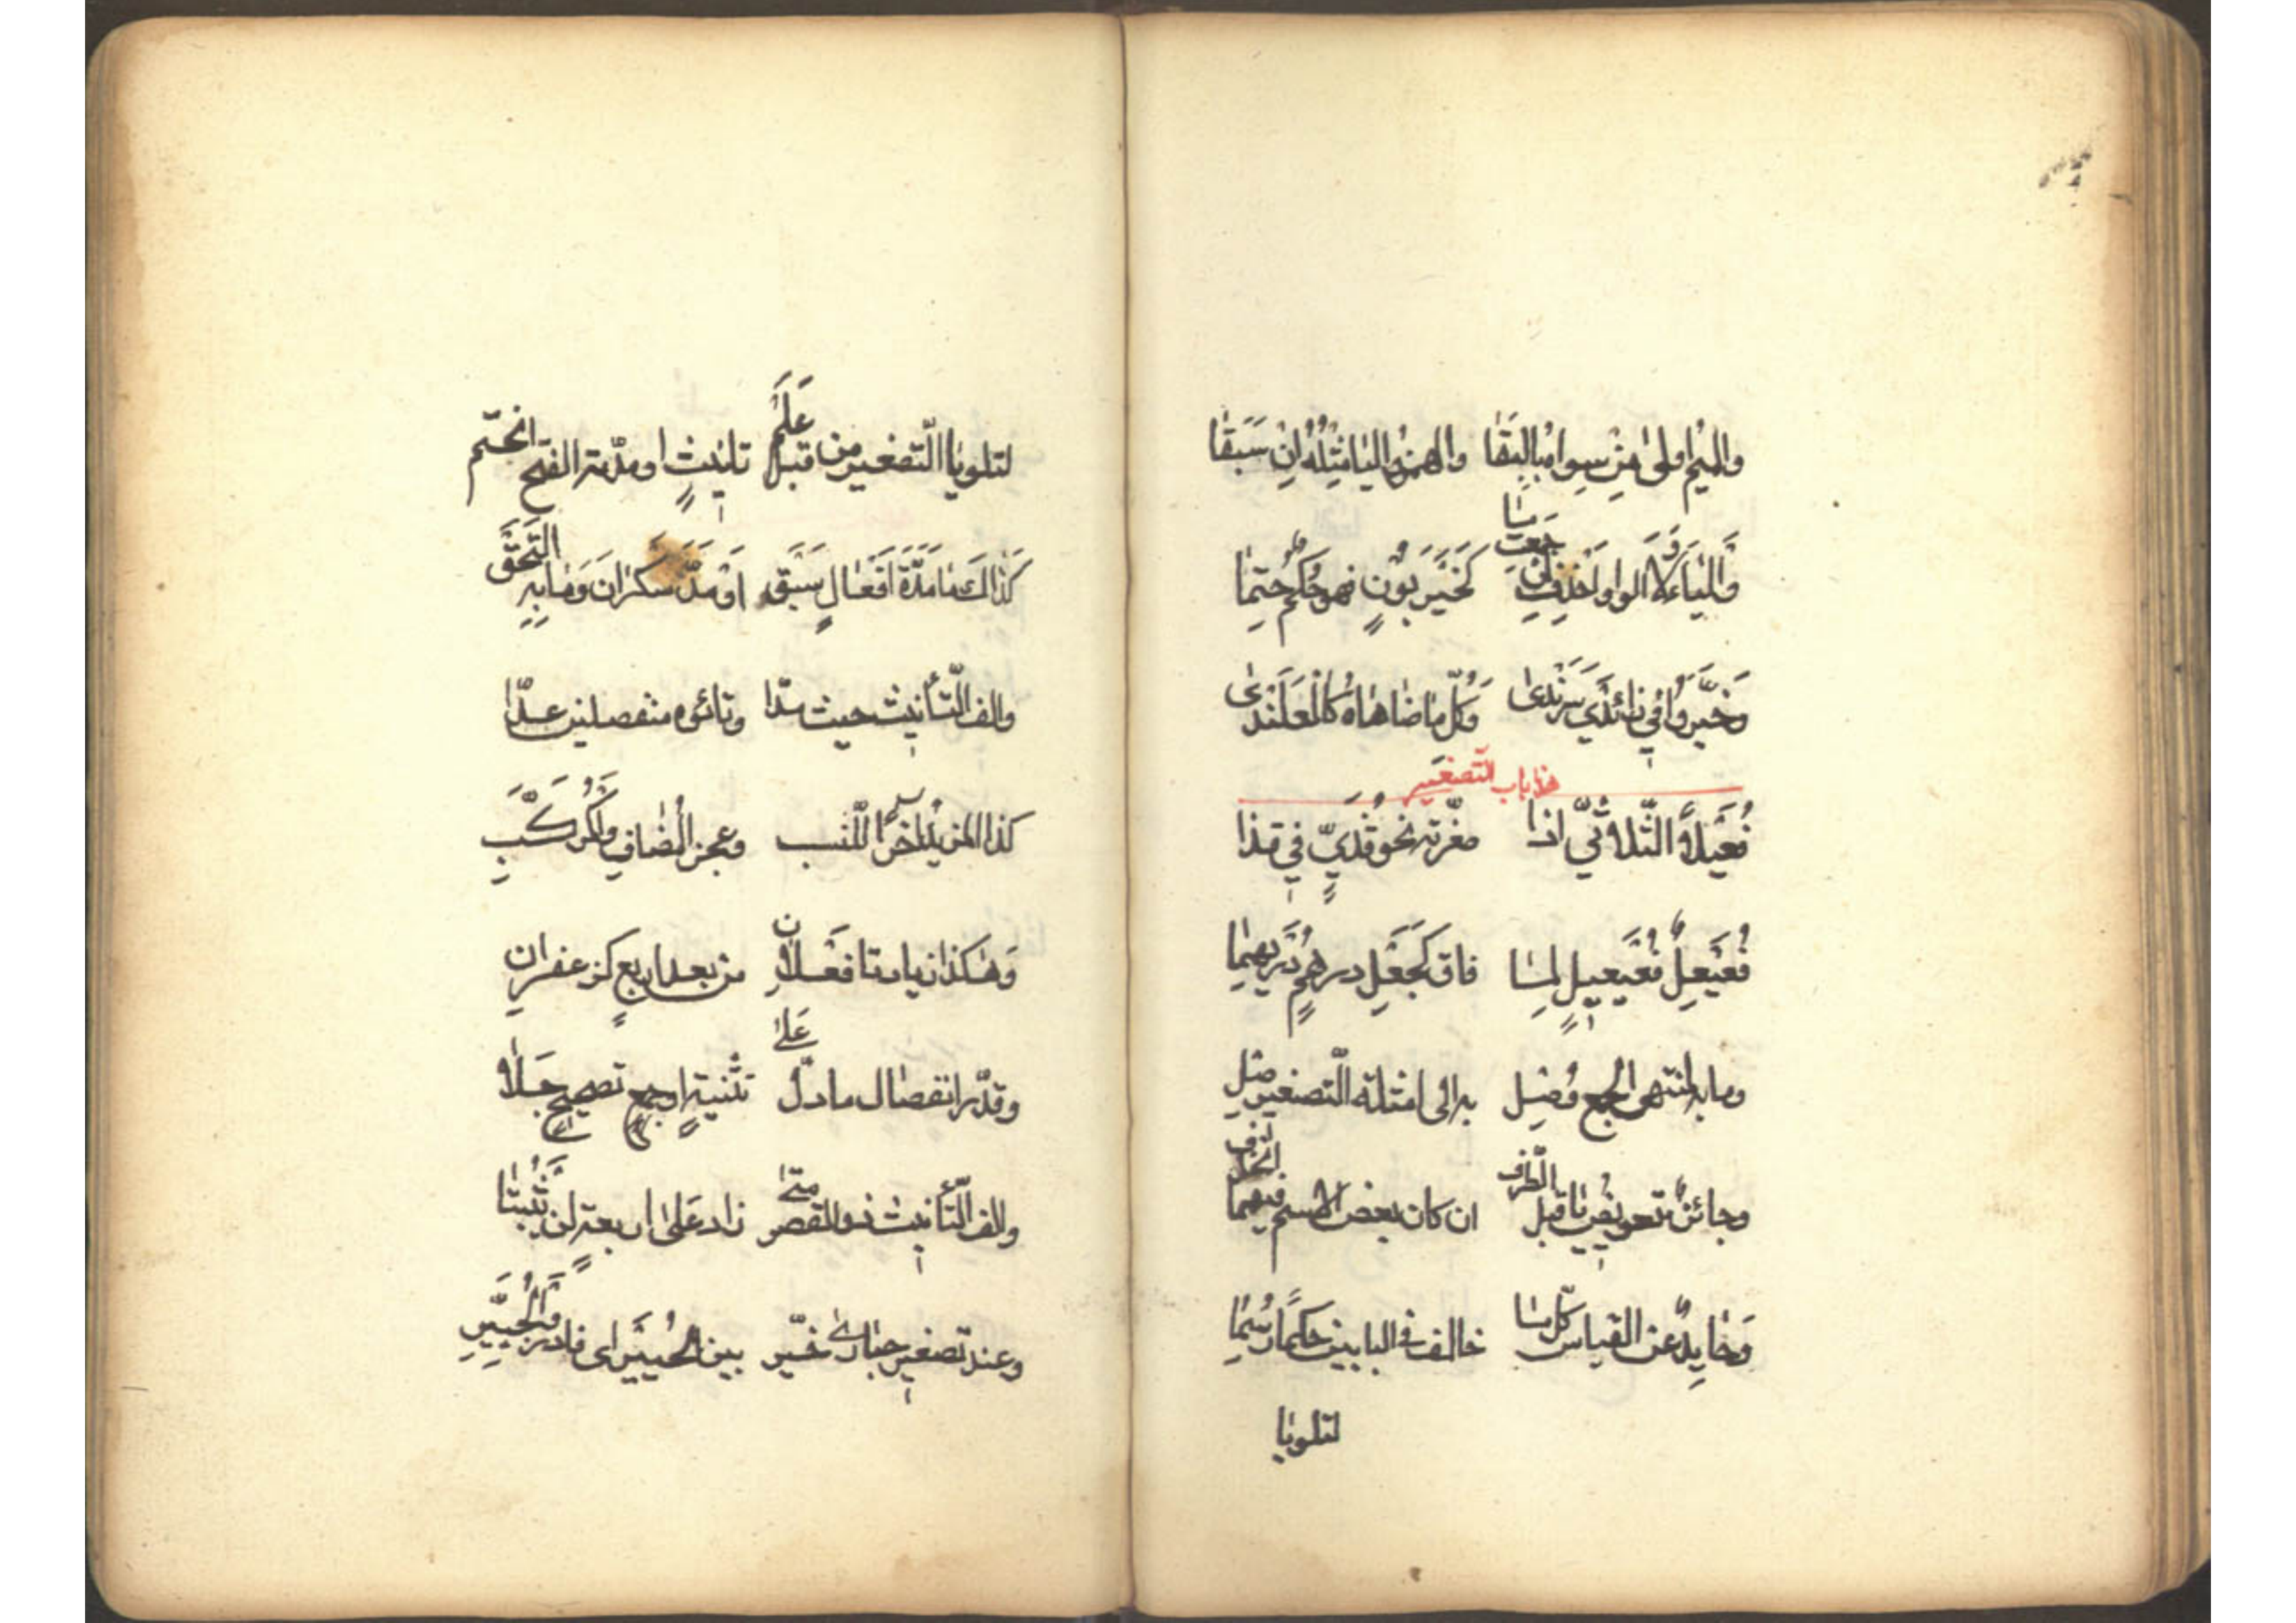 والميم اولى من سوا مبالبقا والهمز واليا مثله ان سبقا
واليا ء لا الواو احذف ان جمعت ما كخيزبون فهو حكم حتما
وخيروا في زائدي سرندى وكل ما ضاهاه كالعلندى
هذا باب التصغير
فعيلا الثلاثي اذا صغرته نحو قذي في قذا
فعيعل فعيعيل لما فاق كجعل درهم دريهما
وما به لمنتهى الجمع وصل به الى امثلة التصغير صل
وجائز تعويض يا قبل الطرف ان كان بعض الاسم فيهما انحذف
وحايد عن القياس كل ما خالف في البابين حكما رسما
لتلويا
لتلويا التصغير من قبل علم تانيث او مدته الفتح انحتم
كذاك ما مدة افعال سبق او مد سكران وما به التحق
والف التأنيث حيث مدا وتائوه منفصلين عدا
كذا المزيد اخرا للنسب وعجز المضاف والمركب
وهكذا زيادتا فعلان من بعد اربع كزعفران
وقدر انفصال ما دل على تثنية او جمع تصحيح جلا
والف التأنيث ذو القصر متى زاد على اربعة لن يثبتا
وعند تصغير حبارى خير بين الحبيرى فادر والحبير